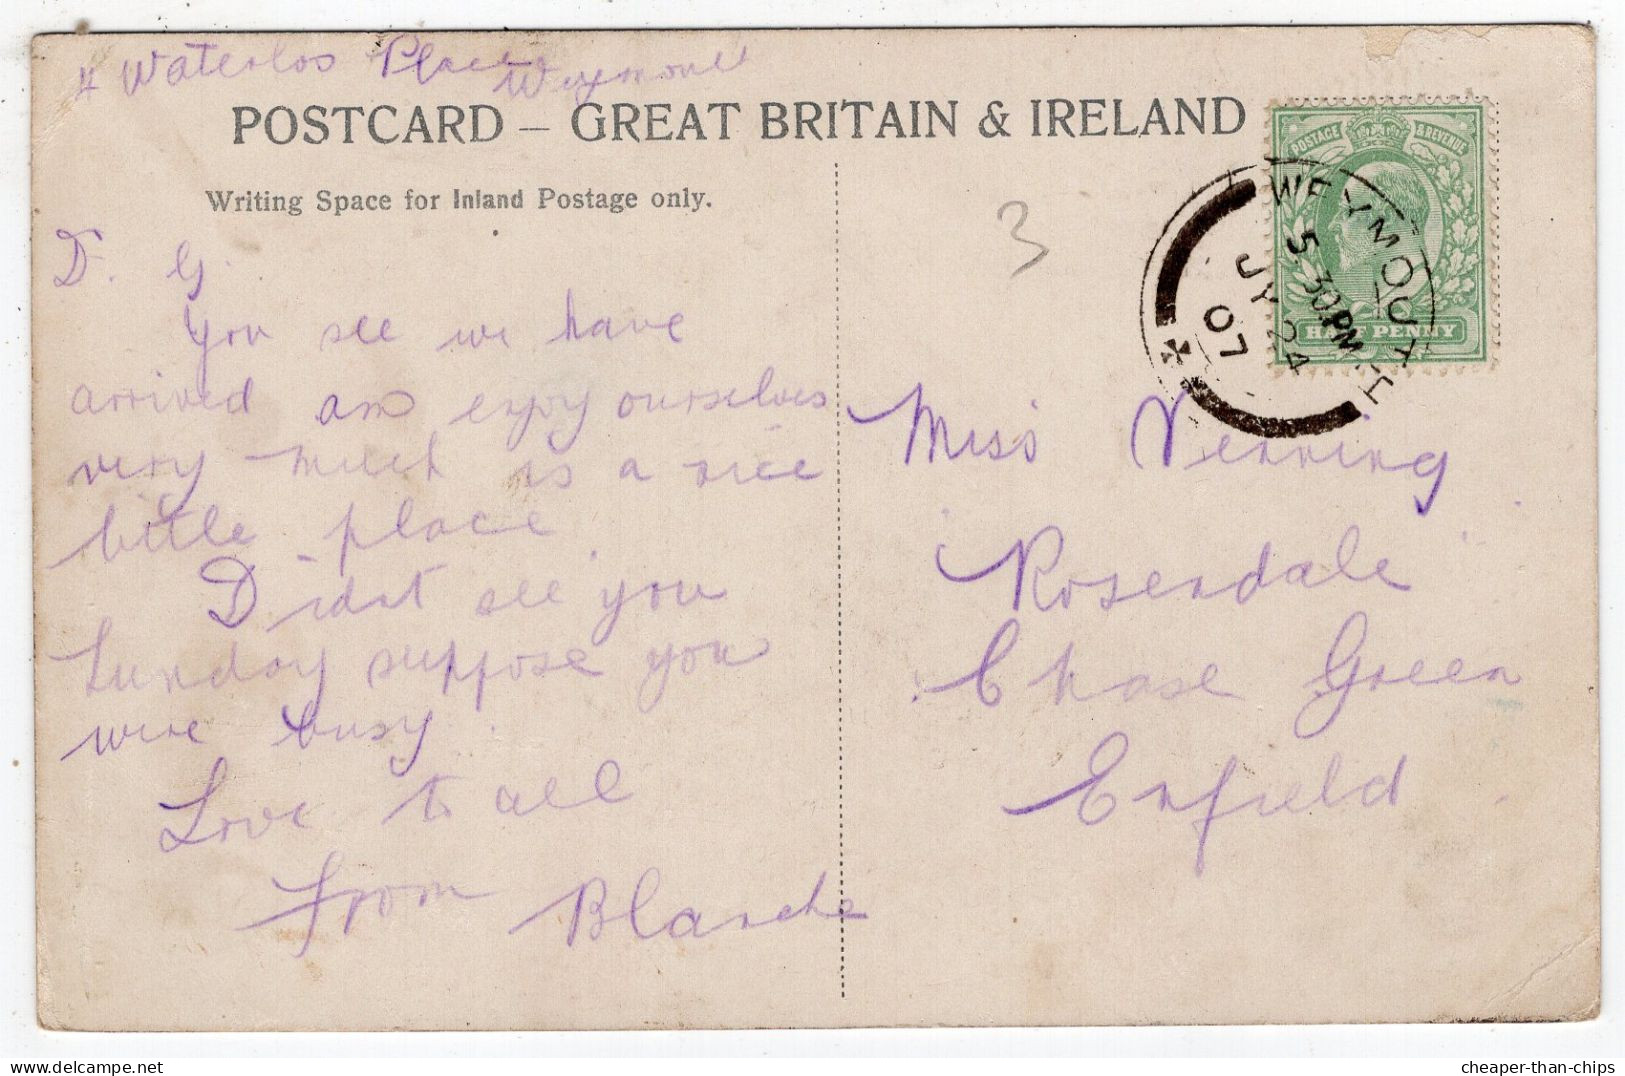 4 Waterloo Place Weymouth
POSTCARD – GREAT BRITAIN & IRELAND
Writing Space for Inland Postage only.
D. G.
You see we have
arrived am enjoy ourselves
very much is a nice
little place
Didnt see you
Sunday suppose you
were busy
Love to all
From Blanche
3
POSTAGE & REVENUE
HALF PENNY
WEYMOUTH
5.30PM
JY 24
07
Miss Venning
Rosendale
Chase Green
Enfield
cheaper-than-chips